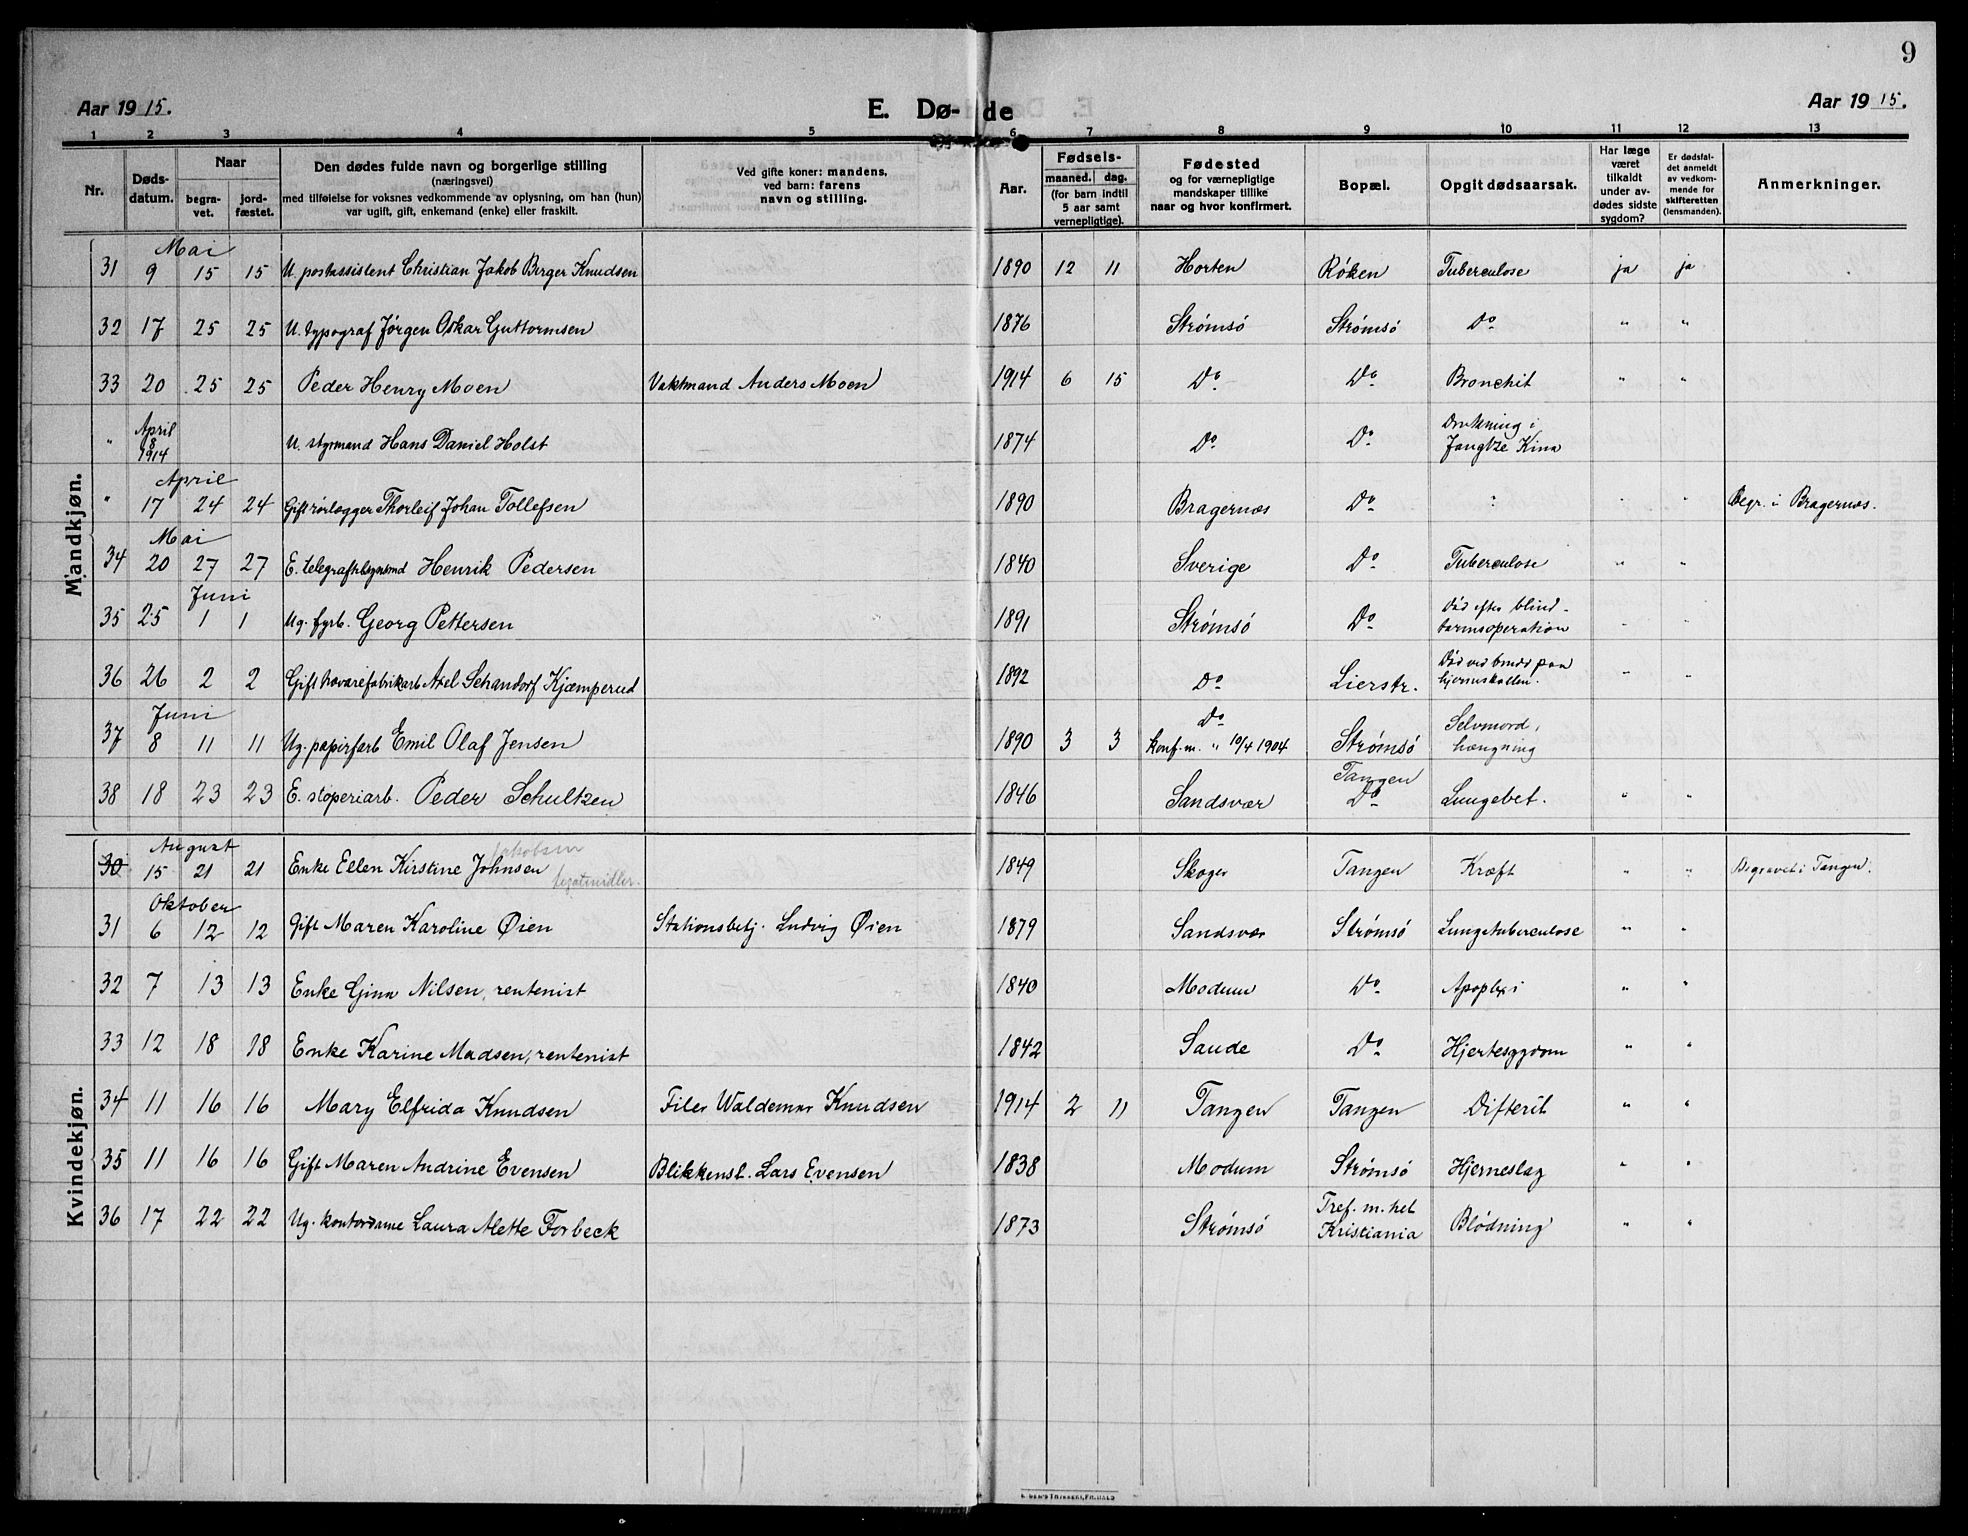 9
Aar 1915. E. Dø-de Aar 1915.
1 2 3 4 5 6 7 8 9 10 11 12 13
Nr. Døds-datum. Naar begra-vet. jord-fæstet. Den dødes fulde navn og borgerlige stilling (næringsvei) med tilføielse for voksnes vedkommende av oplysning, om han (hun) var ugift, gift, enkemand (enke) eller fraskilt. Ved gifte koner: mandens, ved barn: farens navn og stilling. Aar. Fødsels- maaned. dag. (for barn indtil 5 aar samt vernepligtige). Fødested og for værnepligtige mandskaper tillike naar og hvor konfirmert. Bopæl. Opgit dødsaarsak. Har læge været tilkaldt under av-dødes sidste sygdom? Er dødsfal-det anmeldt av vedkom-mende for skifteretten (lensmanden). Anmerkninger.
Mandkjøn.
Mai
31 9 15 15 U. postassistent Christian Jakob Birger Knudsen 1890 12 11 Horten Røken Tuberculose ja ja
32 17 25 25 U. typograf Jørgen Oskar Guttormsen 1876 Strømsø Strømsø Do " "
33 20 25 25 Peder Henry Moen Vaktmand Anders Moen 1914 6 15 Do Do Bronchit " "
" April 8 1914 U. styrmand Hans Daniel Holst 1874 Do Do Drukning i Jangtze Kina
April
" 17 24 24 Gift rørlægger Thorleif Johan Tollefsen 1890 Bragernæs Do " " " Begr. i Bragernæs.
Mai
34 20 27 27 E. Henrik Pedersen 1840 Sverige Do Tuberculose " "
Juni
35 25 1 1 Ug. fyrb. Georg Pettersen 1891 Strømsø Do Død efter blind-tarmsoperation " "
36 26 2 2 Gift Axel Schandorf Kjæmperud 1892 Do Lierstr. Død ved brudd paa hjerneskallen. " "
Juni
37 8 11 11 Ug. papirfarb Emil Olaf Jensen 1890 3 3 Do konf. m. " 10/4 1904 Strømsø Selvmord, hængning
38 18 23 23 E. stoperiarb. Peder Schultzen 1846 Sandsvær Tangen Do Lungebet. " "
Kvindekjøn.
August
30 15 21 21 Enke Ellen Kirstine Johnsen Jakobsen 1849 Skoger Tangen Kræft " " Begravet i Tangen.
Oktober
31 6 12 12 Gift Maren Karoline Øien Stationsbetj. Ludvig Øien 1879 Sandsvær Strømsø Lungetuberculose " "
32 7 13 13 Enke Gina Nilsen, rentenist 1840 Modum Do Apoplexi " "
33 12 18 18 Enke Karine Madsen, rentenist 1842 Saude Do Hjertesygdom " "
34 11 16 16 Mary Elfrida Knudsen Filer Waldemar Knudsen 1914 2 11 Tangen Tangen Difterit " "
35 11 16 16 Gift Maren Andrine Evensen Blikkensl. Lars Evensen 1838 Modum Strømsø Hjerneslag " "
36 17 22 22 Ug. kontordame Laura Alette Forbeck 1873 Strømsø Tref. m. het Kristiania Blødning " "